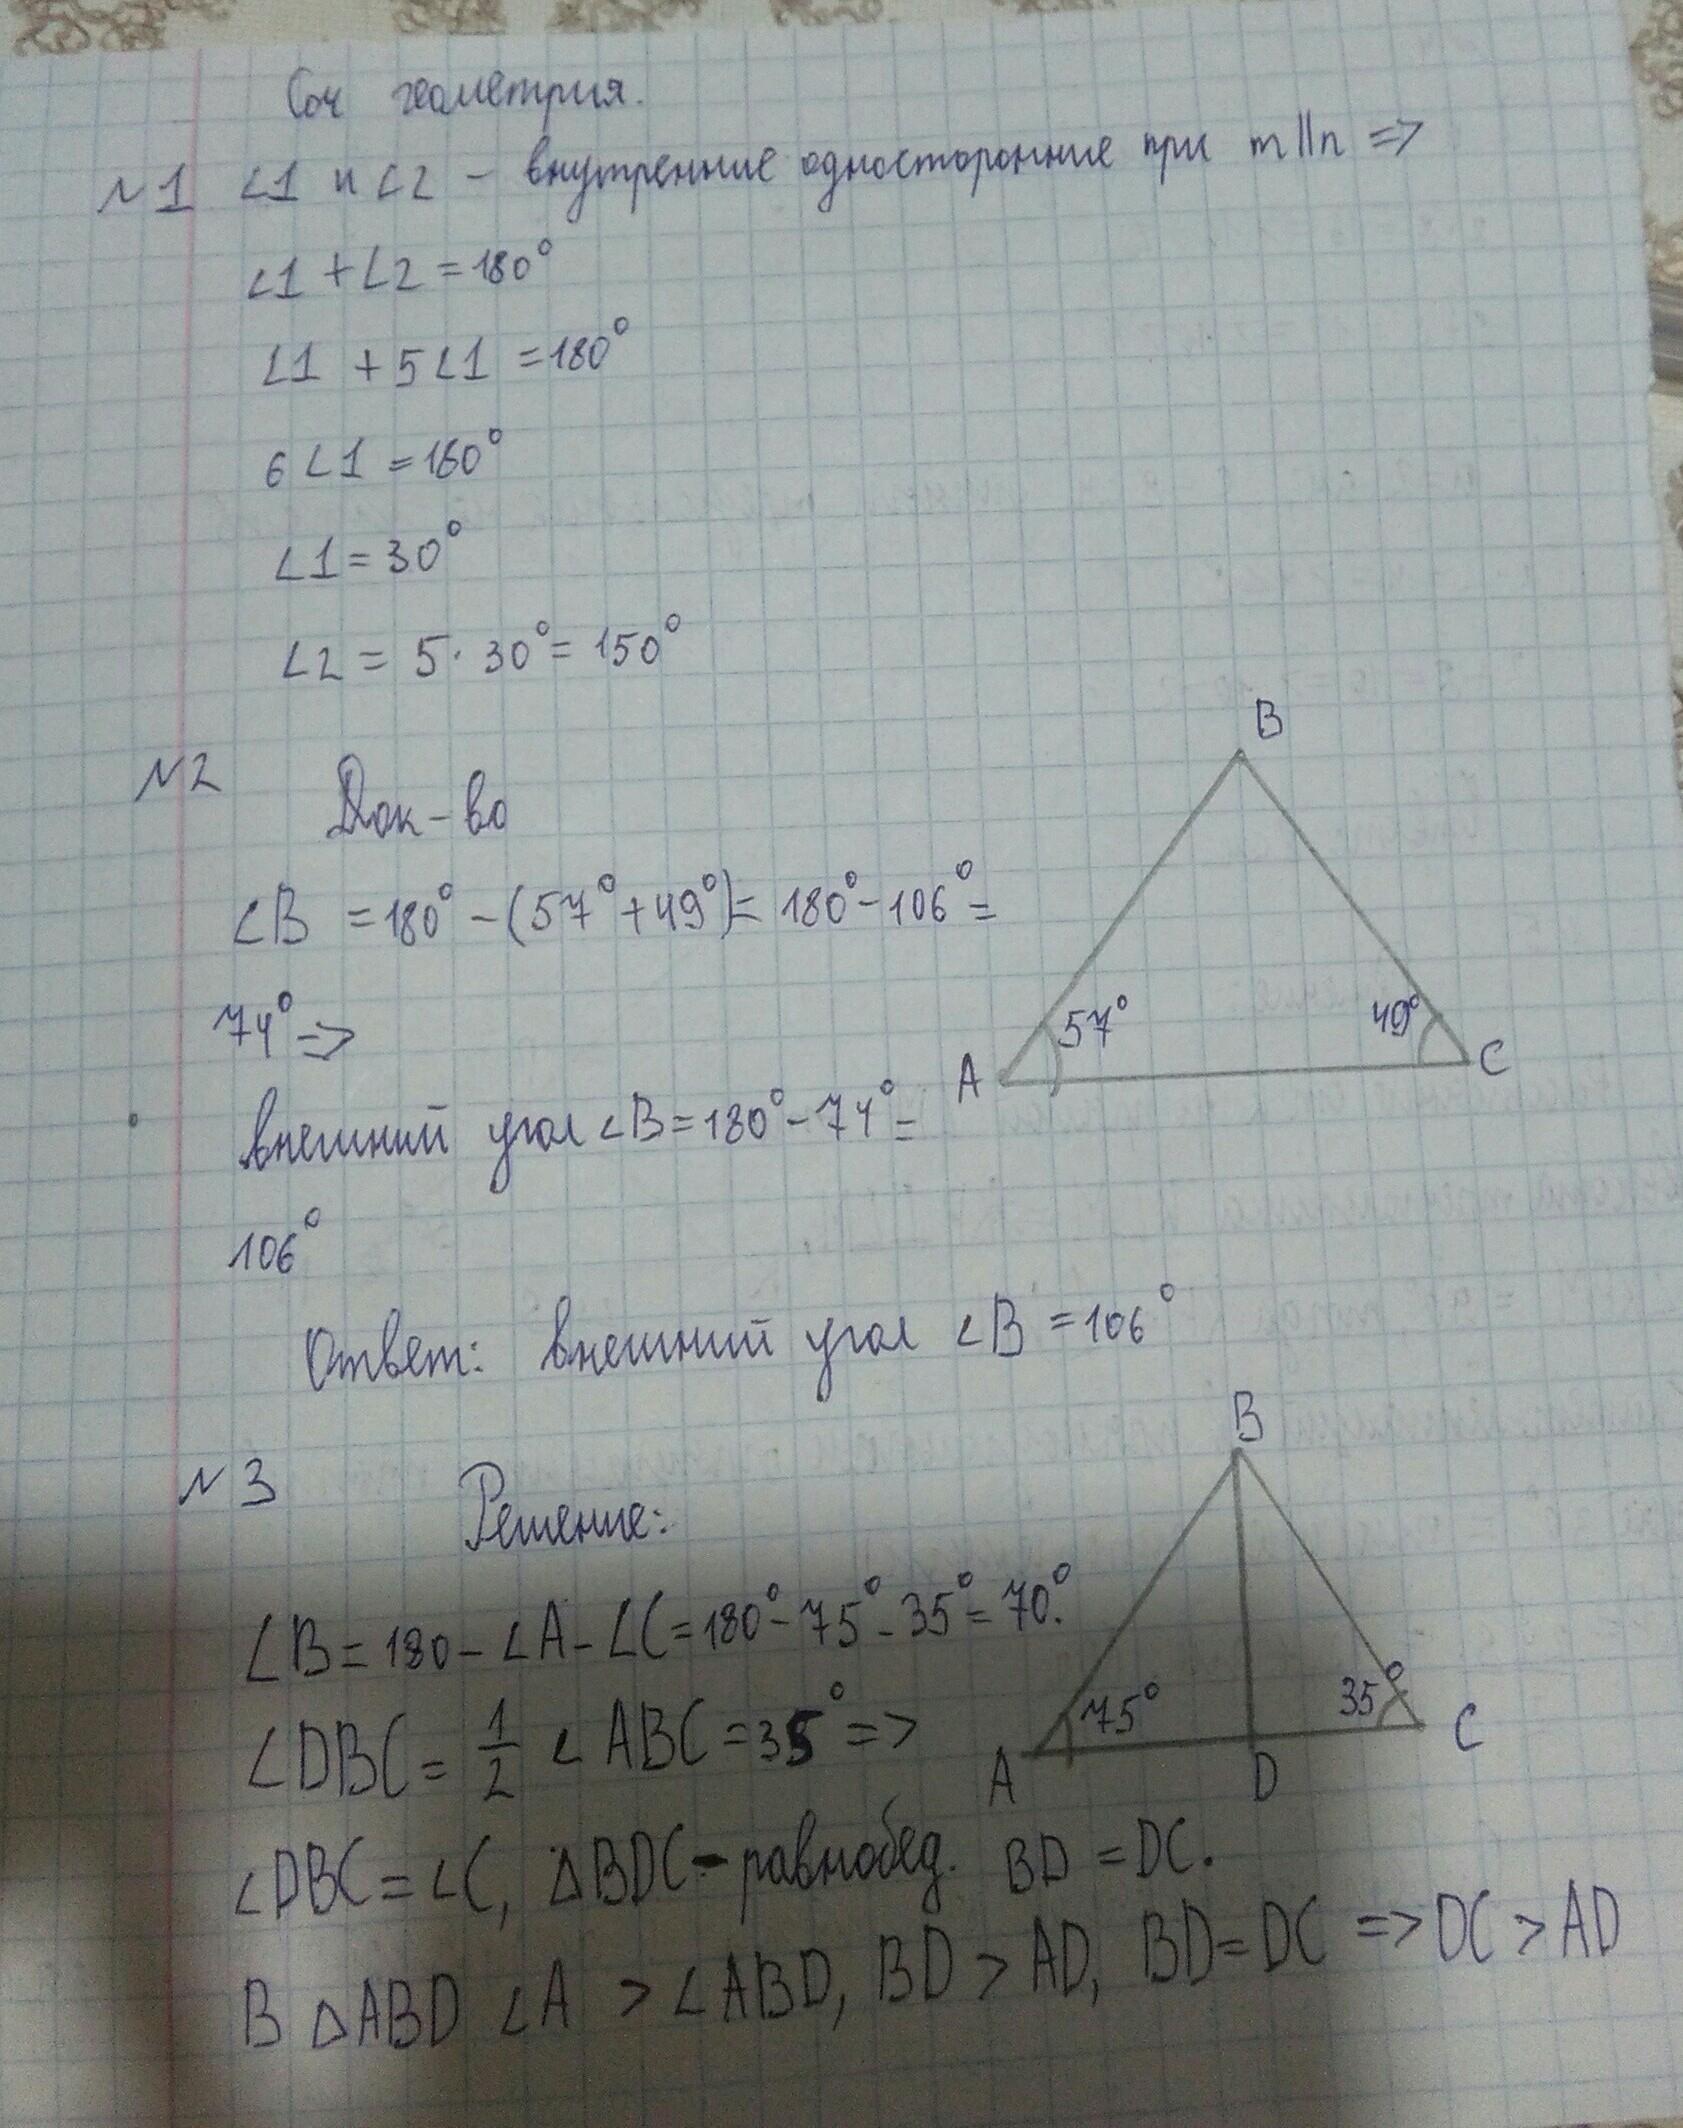 Соч геометрия.
№1 ∠1 и ∠2 - внутренние односторонние при m||n =>
∠1 + ∠2 = 180°
∠1 + 5∠1 = 180°
6∠1 = 180°
∠1 = 30°
∠2 = 5 · 30° = 150°
№2 Док-во
∠B = 180° - (57° + 49°) = 180° - 106° =
74° =>
внешний угол ∠B = 180° - 74° =
106°
Ответ: внешний угол ∠B = 106°
B
57°
49°
A
C
№3 Решение:
∠B = 180 - ∠A - ∠C = 180° - 75° - 35° = 70°.
∠DBC = 1/2 ∠ABC = 35° =>
∠DBC = ∠C, △BDC - равнобед. BD = DC.
В △ABD ∠A > ∠ABD, BD > AD, BD = DC => DC > AD
B
75°
35°
A
D
C